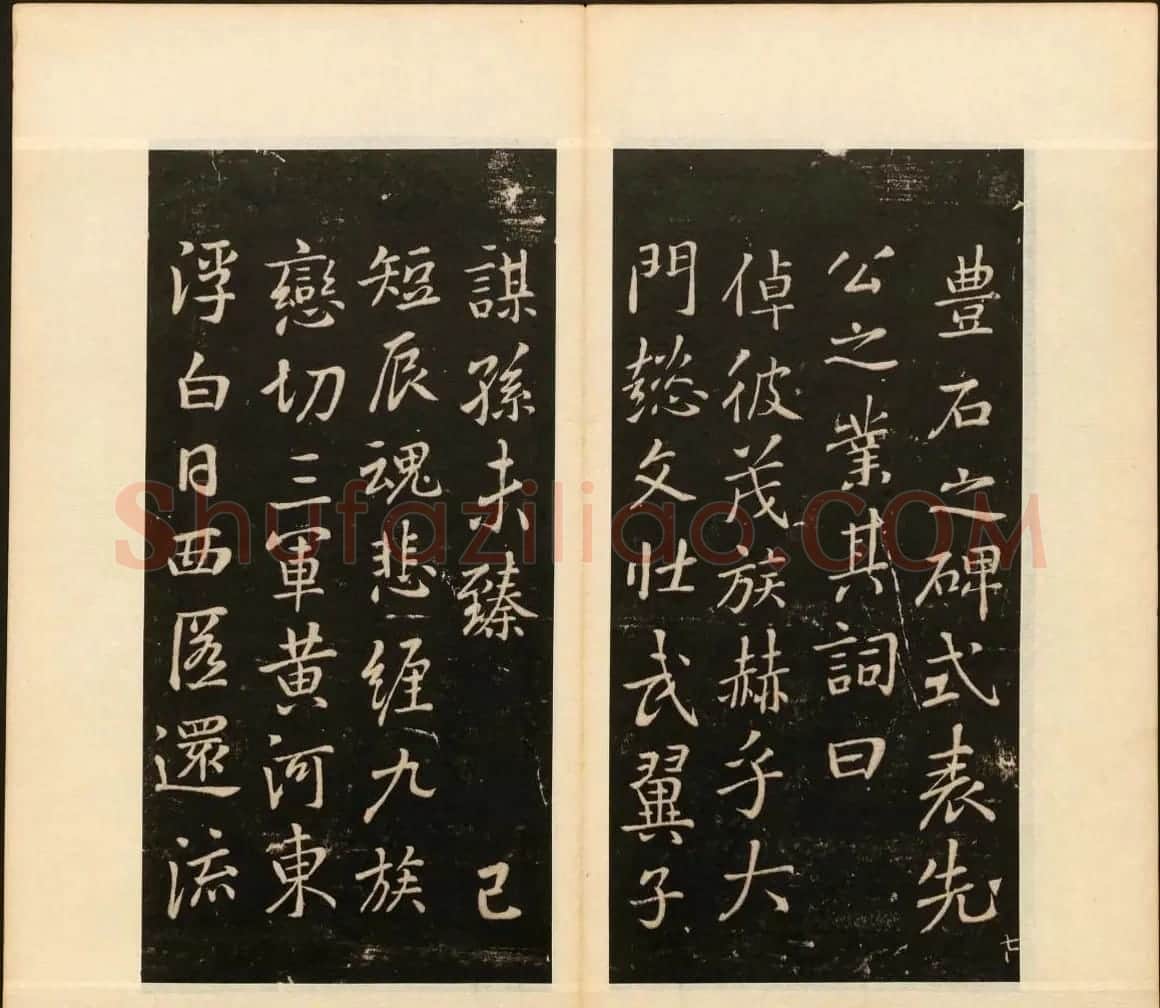 豊石之碑式表先
公之業其詞曰
倬彼茂族赫乎大
門懿文壮武翼子
謀孫未臻 已
短辰魂悲纏九族
戀切三軍黄河東
浮白日西匿還流
七
Shufaziliao.COM